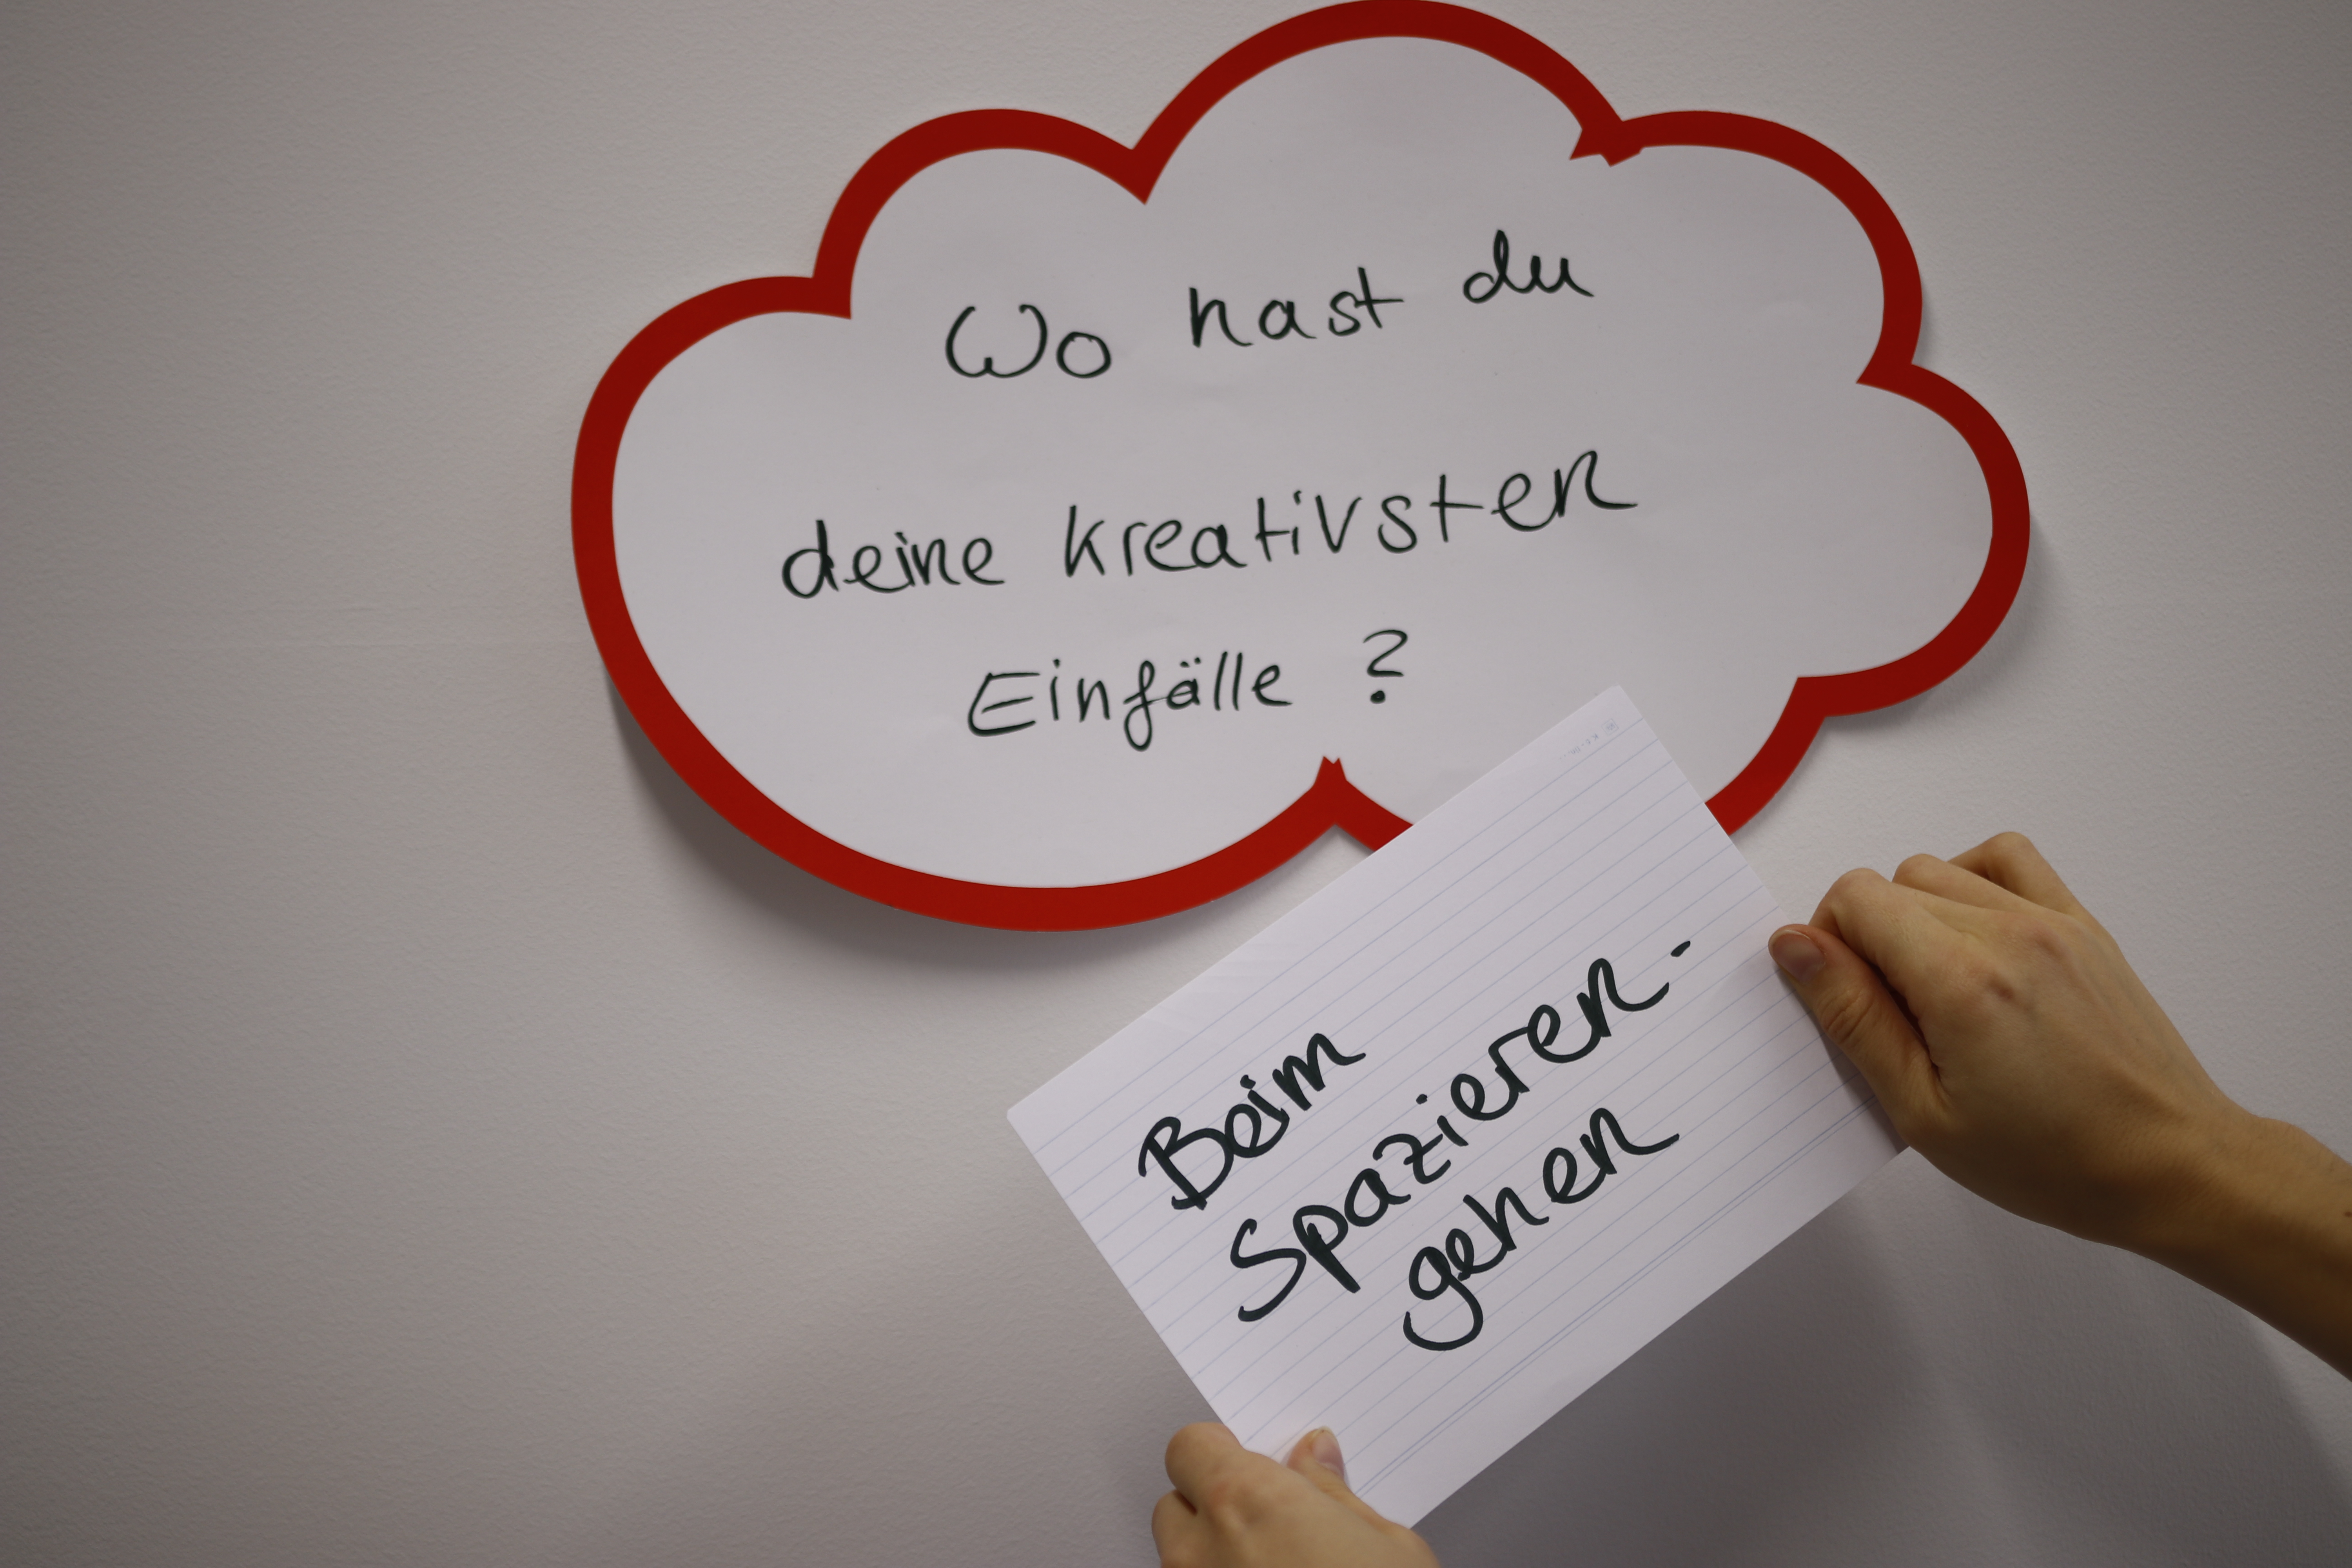 Wo hast du
deine kreativsten
Einfälle ?
Beim
Spazieren-
gehen